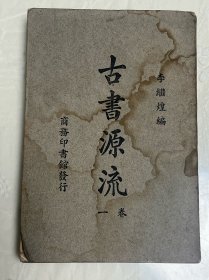 李繼煌編
古書源流
卷一
商務印書館發行